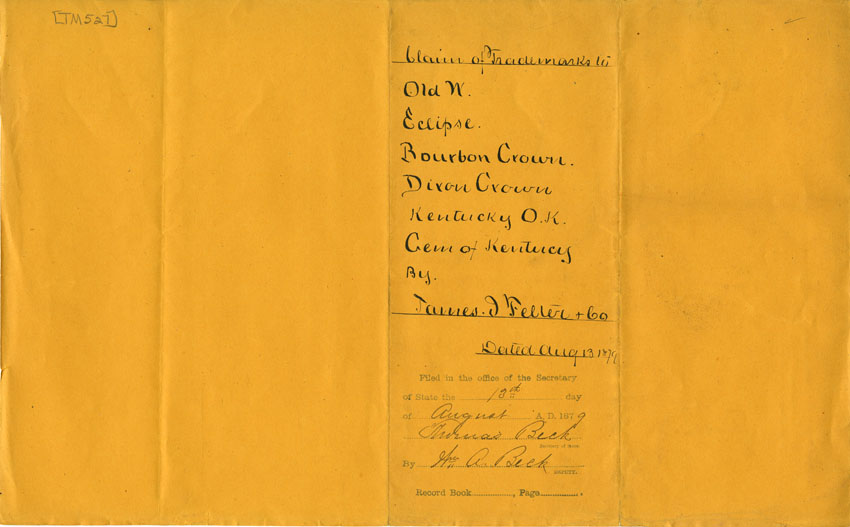 [TM527]
Claim of Trademarks to
Old W.
Eclipse.
Bourbon Crown.
Dixon Crown
Kentucky O.K.
Gem of Kentucy
By.
James. I Felter + Co
Dated Aug 13 1879
Filed in the office of the Secretary
of State the 13th day
of August A. D. 1879
Thomas Beck
Secretary of State
By Wm A. Beck
DEPUTY.
Record Book .............., Page..............